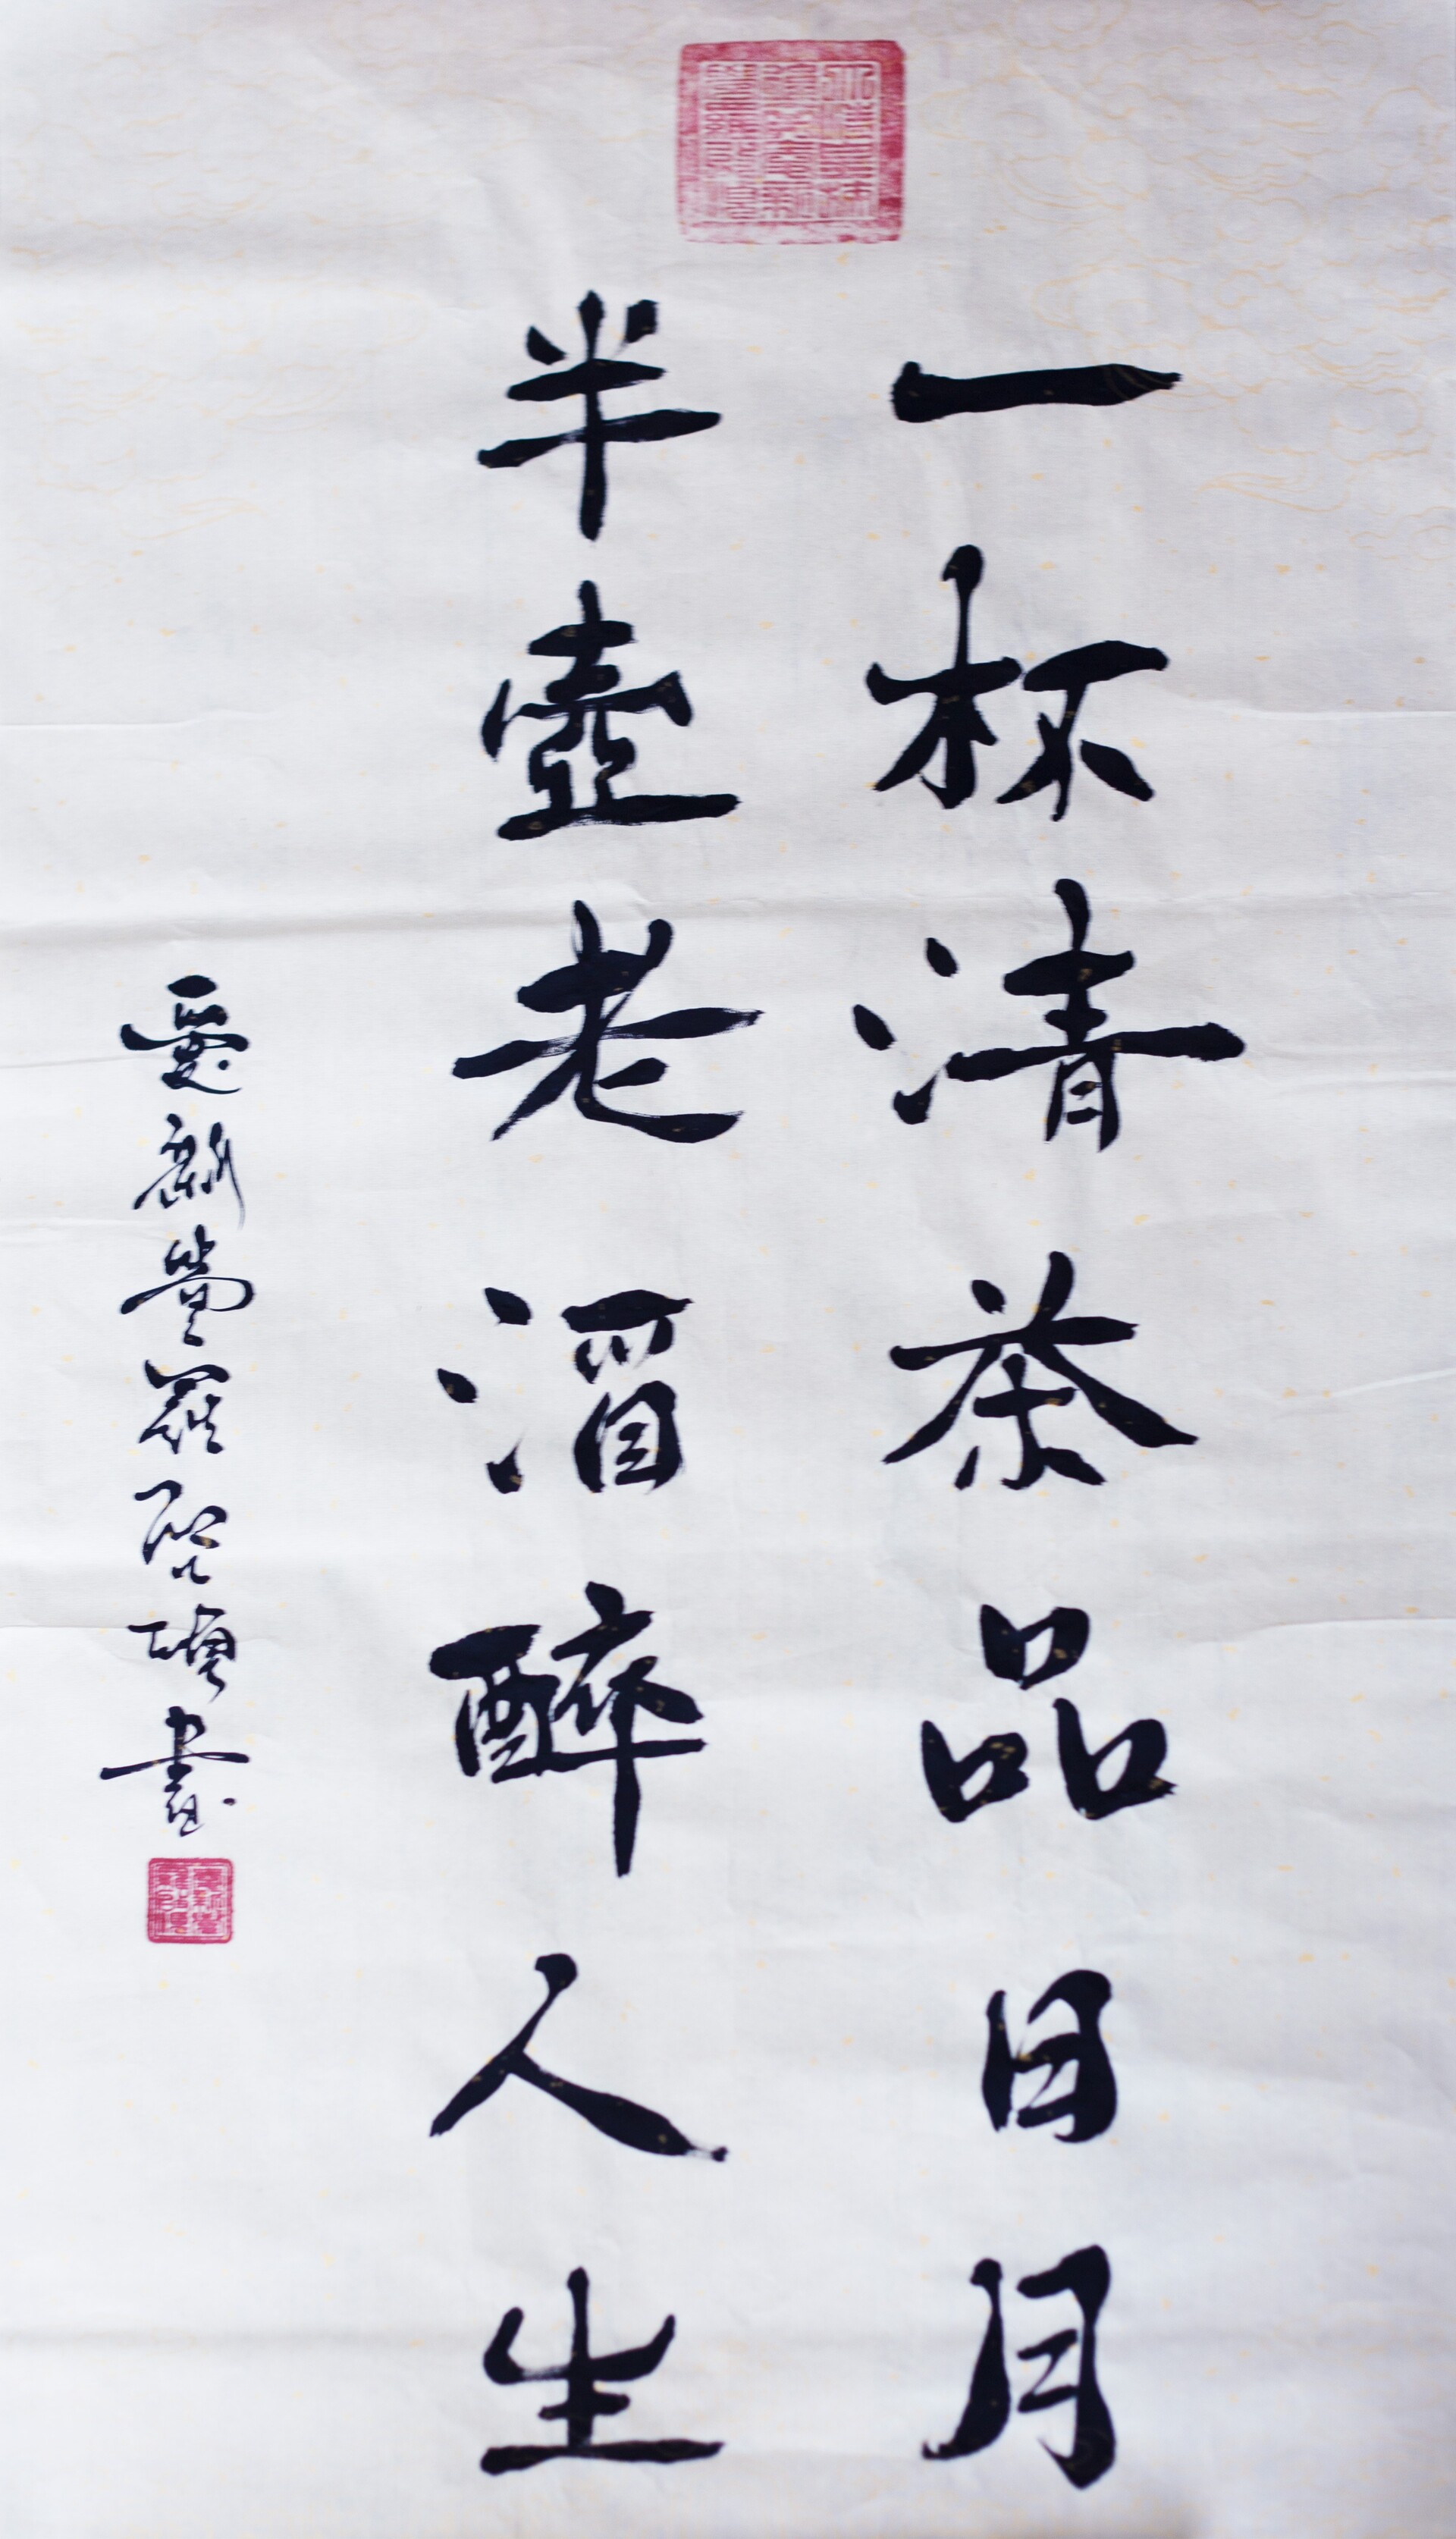 一杯清茶品日月
半壺老酒醉人生
愛新覺羅啓驌書